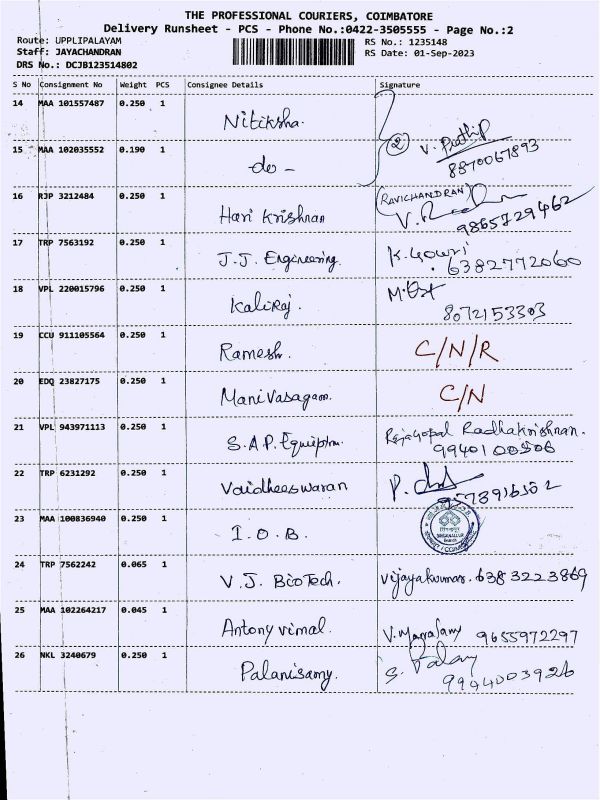 THE PROFESSIONAL COURIERS, COIMBATORE
Delivery Runsheet - PCS - Phone No.:0422-3505555 - Page No.:2
Route: UPPLIPALAYAM
Staff: JAYACHANDRAN
DRS No.: DCJB123514802
RS No.: 1235148
RS Date: 01-Sep-2023
S No Consignment No Weight PCS Consignee Details Signature
14 MAA 101557487 0.250 1 Nitiksha.
15 MAA 102035552 0.190 1 do - 2 V. Prathip
8870067893
16 RJP 3212484 0.250 1 Hari Krishnan (RAVICHANDRAN)
9865729462
17 TRP 7563192 0.250 1 J.J. Engineering. K.Gowri
6382772060
18 VPL 220015796 0.250 1 Kaliraj.
8072153303
19 CCU 911105564 0.250 1 Ramesh. C/N/R
20 EDQ 23827175 0.250 1 Manivasagam. C/N
21 VPL 943971113 0.250 1 S.A.P. Equiptm. Rajagopal Radhakrishnan.
9940100506
22 TRP 6231292 0.250 1 Vaidheeswaran
9578916502
23 MAA 100836940 0.250 1 I.O.B.
24 TRP 7562242 0.065 1 V.J. BioTech. Vijayakumar. 6383223869
25 MAA 102264217 0.045 1 Antony vimal. 9655972297
26 NKL 3240679 0.250 1 Palanisamy. S. Palany
9994003926